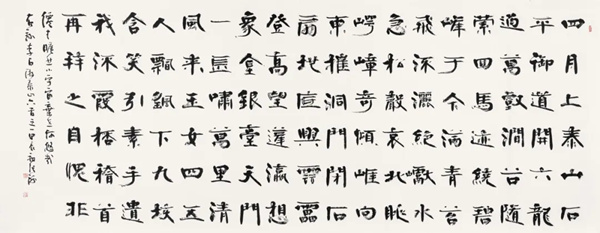 四月上泰山石
平御道開六龍
過萬壑澗谷隨
縈回馬跡繞碧
峰于今滿青苔
飛流灑絕巘水
急松聲哀北眺
崿嶂奇傾崖向
東摧洞門閉石
扇地底興雲雷
登高望蓬瀛想
象金銀臺天門
一長嘯萬里清
風來玉女四五
人飄飖下九垓
含笑引素手遺
我流霞杯稽首
再拜之自愧非
仙才曠然小宇宙棄世何悠哉
右錄李白游泰山六首之一